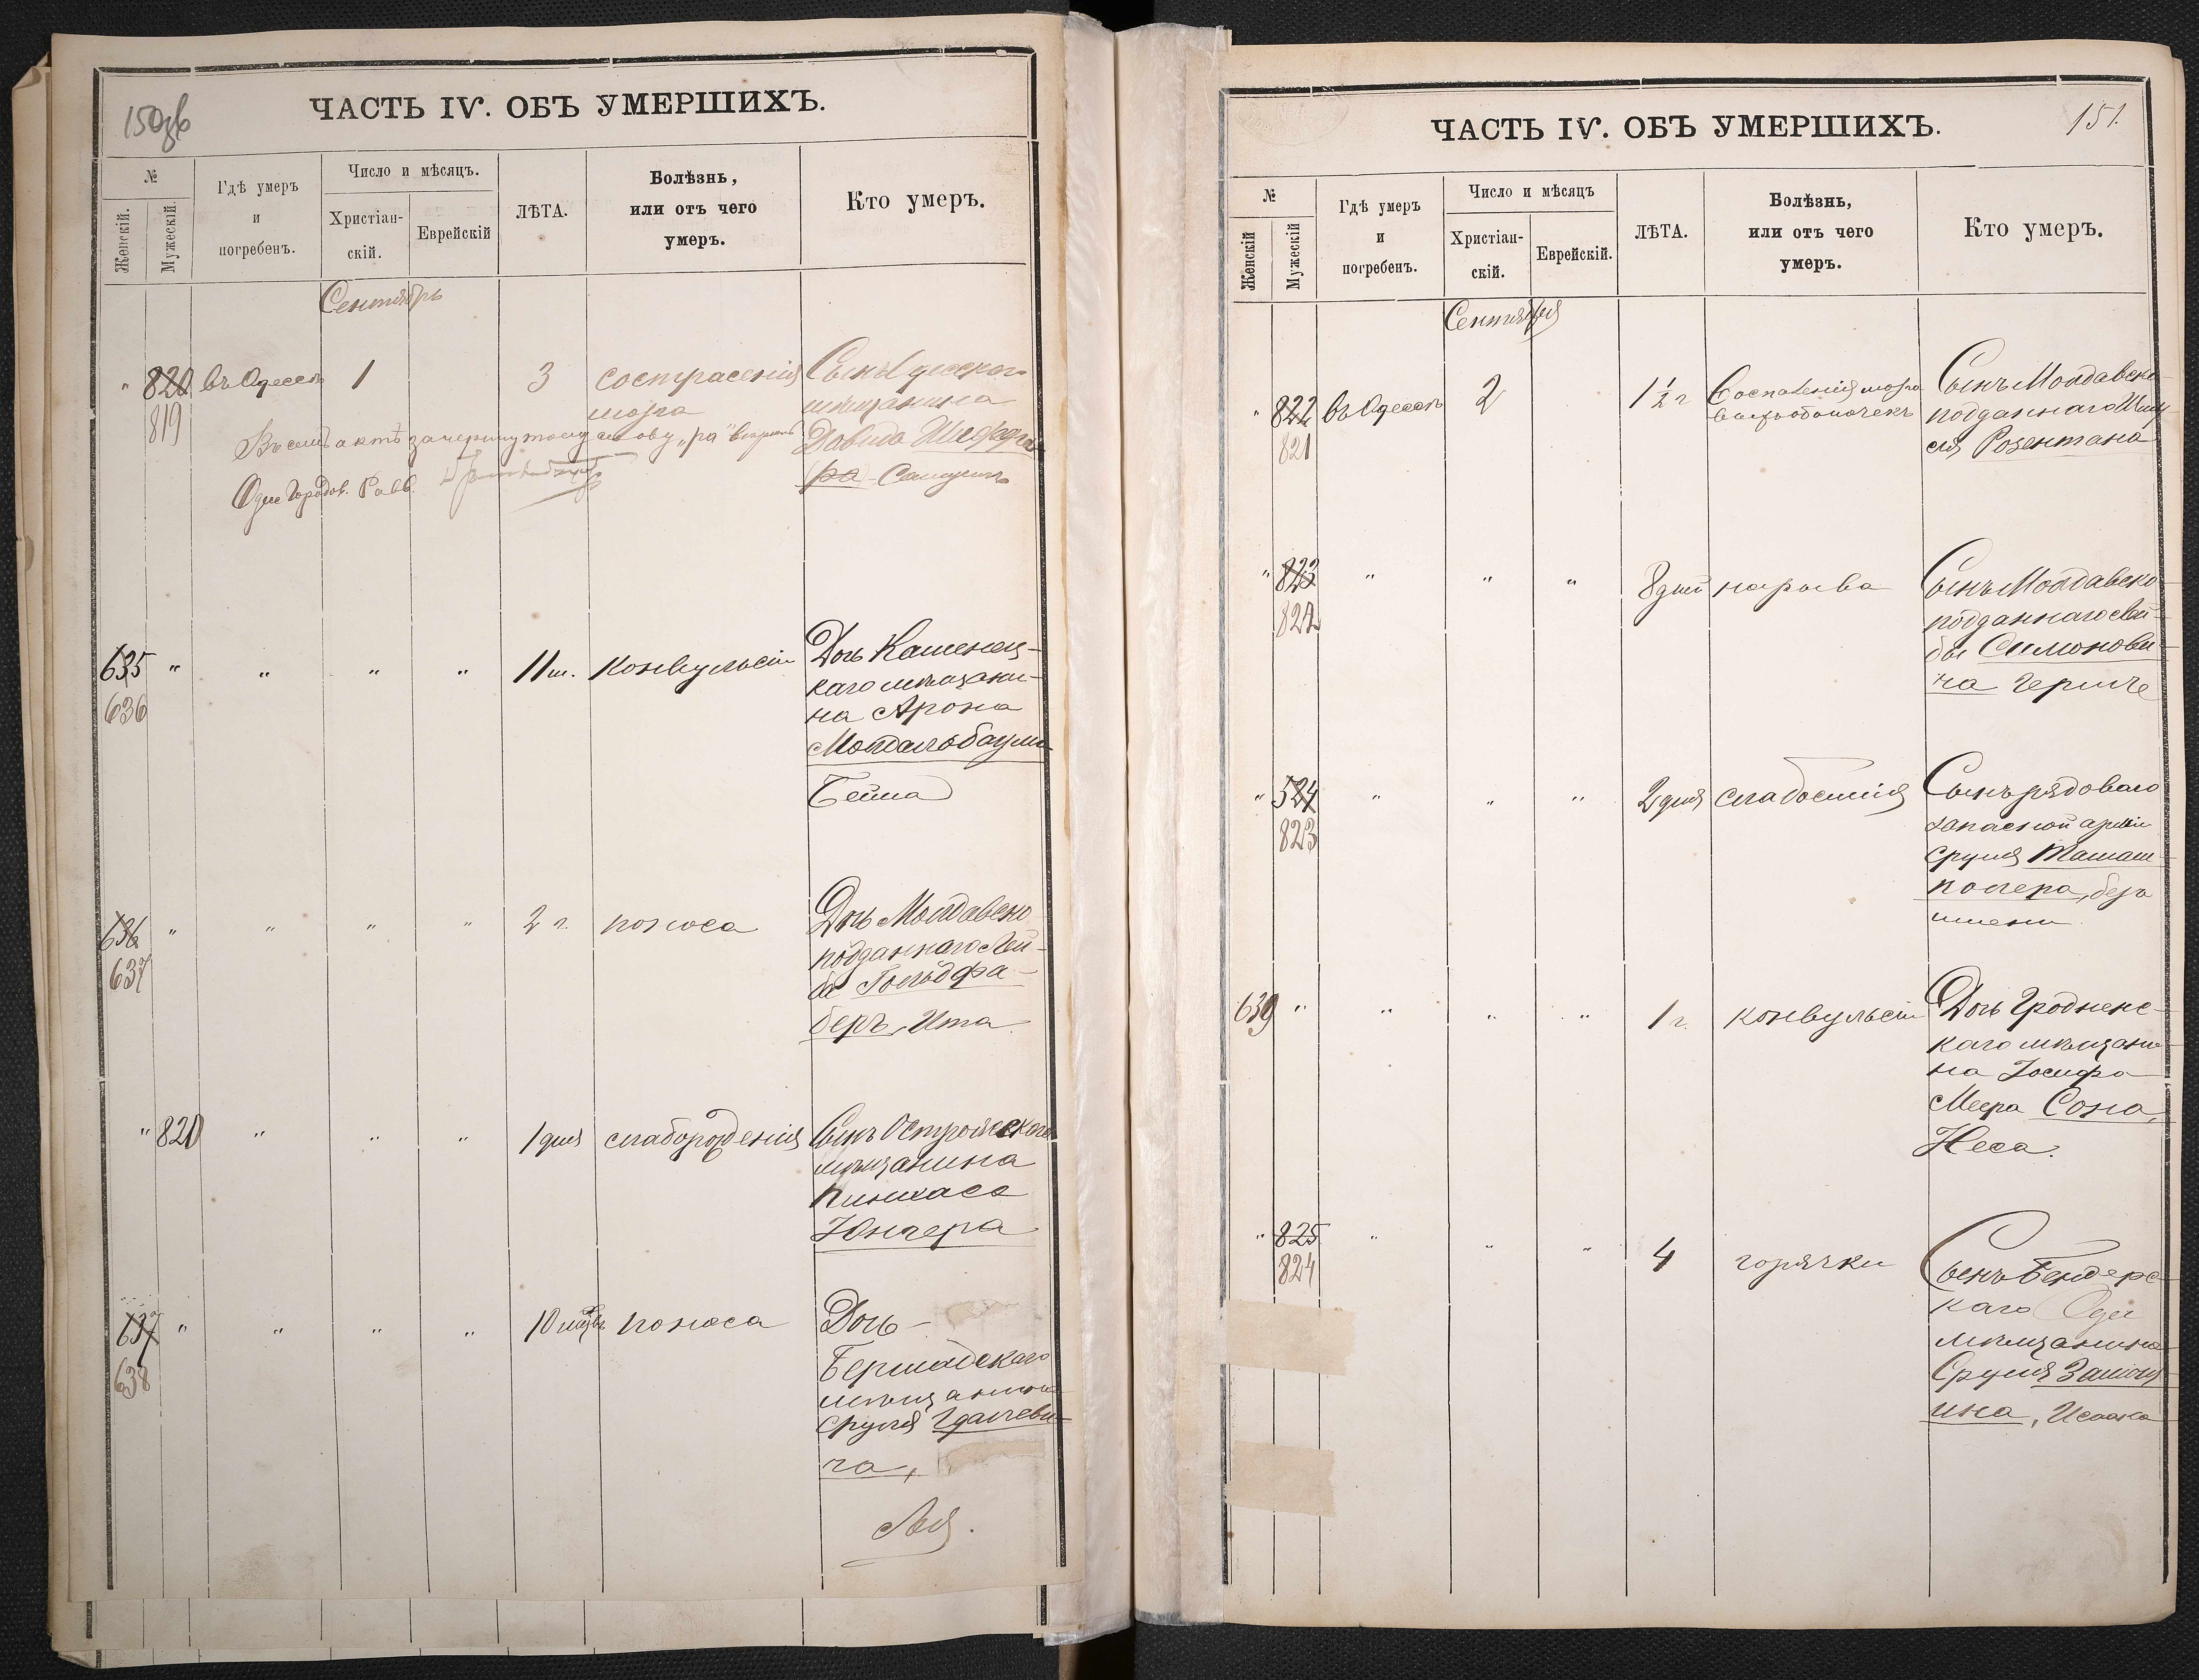 150об
ЧАСТЬ IV. ОБЪ УМЕРШИХЪ.
№
Женскій.
Мужескій.
Гдѣ умеръ
и
погребенъ.
Число и мѣсяцъ.
Христіан-
скій.
Еврейскій
ЛѢТА.
Болѣзнь,
или отъ чего
умеръ.
Кто умеръ.
Сентябрь
" 820 въ Одессѣ 1 3 сострасенія
мозга
819
Сынъ Одесскаго
мѣщанина
Давида
ра Самуилъ
Въ семъ актѣ зачеркнутому слову „ра"
Одес. Городов. Равв.
635 " " " " 11 м. конвульсіи
636
Дочь Каменец-
каго мѣщани-
на Арона
Мондальбаума
Бейла
636 " " " " 2 г. поноса
637
Дочь Молдавско
подданнаго Лей-
бы Гольдфа-
беръ, Ита
" 820 " " " 1 дня слаборожденія
Сынъ Остропольскаго
мѣщанина
Пинхаса
Юнгера
637 " " " " 10 мѣс. поноса
638
Дочь
Бершадскаго
мѣщанина
Сруля Гдалеви-
ча,
Лея.
151.
ЧАСТЬ IV. ОБЪ УМЕРШИХЪ.
№
Женскій
Мужескій
Гдѣ умеръ
и
погребенъ.
Число и мѣсяцъ
Христіан-
скій.
Еврейскій.
ЛѢТА.
Болѣзнь,
или отъ чего
умеръ.
Кто умеръ.
Сентября
" 822 въ Одессѣ 2 1½ г Воспаленія мозго
выхъ оболочекъ
821
Сынъ Молдавско
подданнаго Шму
ля Розентала
" 823 " " " 8 дней нарыва
822
Сынъ Молдавско
подданнаго Лей-
бы Симонови-
ча Герше
" 524 " " " 2 дня слабости
823
Сынъ рядоваго
запасной арміи
Сруля Таташ-
полера, безъ
имени
639 " " " " 1 г. конвульсіи
Дочь Гродненс-
каго мѣщани-
на Іосифа
Меера Сона,
Неса.
" 825 " " " 4 горячки
824
Сынъ Бендерс-
каго
мѣщанина
Сруля
ина, Исаака